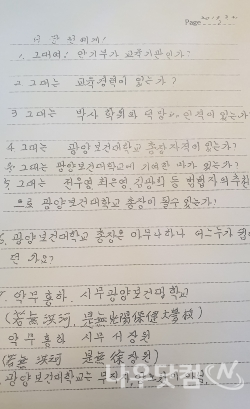 Page
서 장 원에게!
1. 그대여! 안기부가 교육기관인가?
2 그대는 교육경력이 있는가?
3 그대는 박사 학위와 덕망 인격이 있는가?
4 그대는 광양보건대학교 총장자격이 있는가?
5 그대는 광양보건대학교에 기여한 바가 있는가?
5, 그대는 전우열 최은영, 김광희 등 범법자의 추천
으로 광양보건대학교 총장이 될수 있는가?
6. 광양보건대학교 총장은 아무나하나 어느누가
던 가요?
7. 약무 홍하 시무광양보건대학교
(若無 洪河, 是無光陽保健大學校)
약무 홍하 시무 서장원
(若無 洪河 是無 徐장원)
광양보건대학교는
나우닷컴